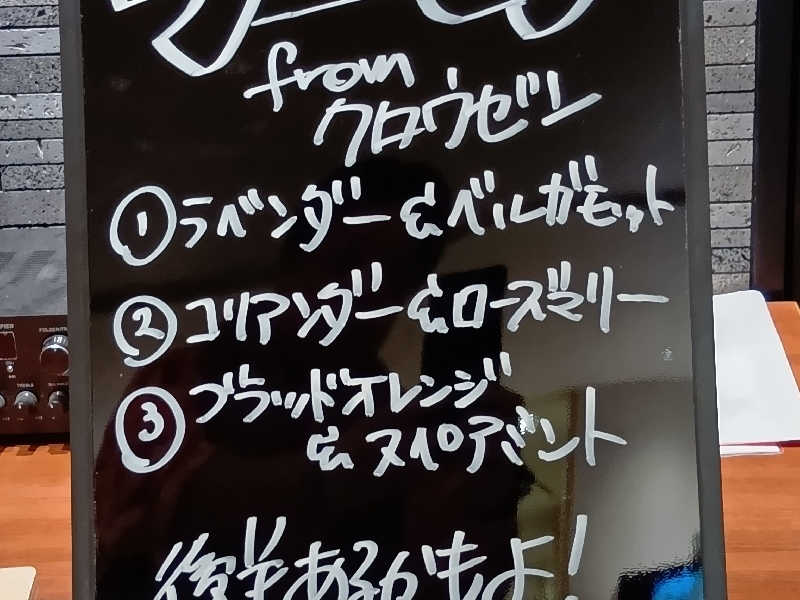 from
クロウゼン
①ラベンダー&ベルガモット
②コリアンダー&ローズマリー
③ブラッドオレンジ
&スペアミント
後半あるかもよ!